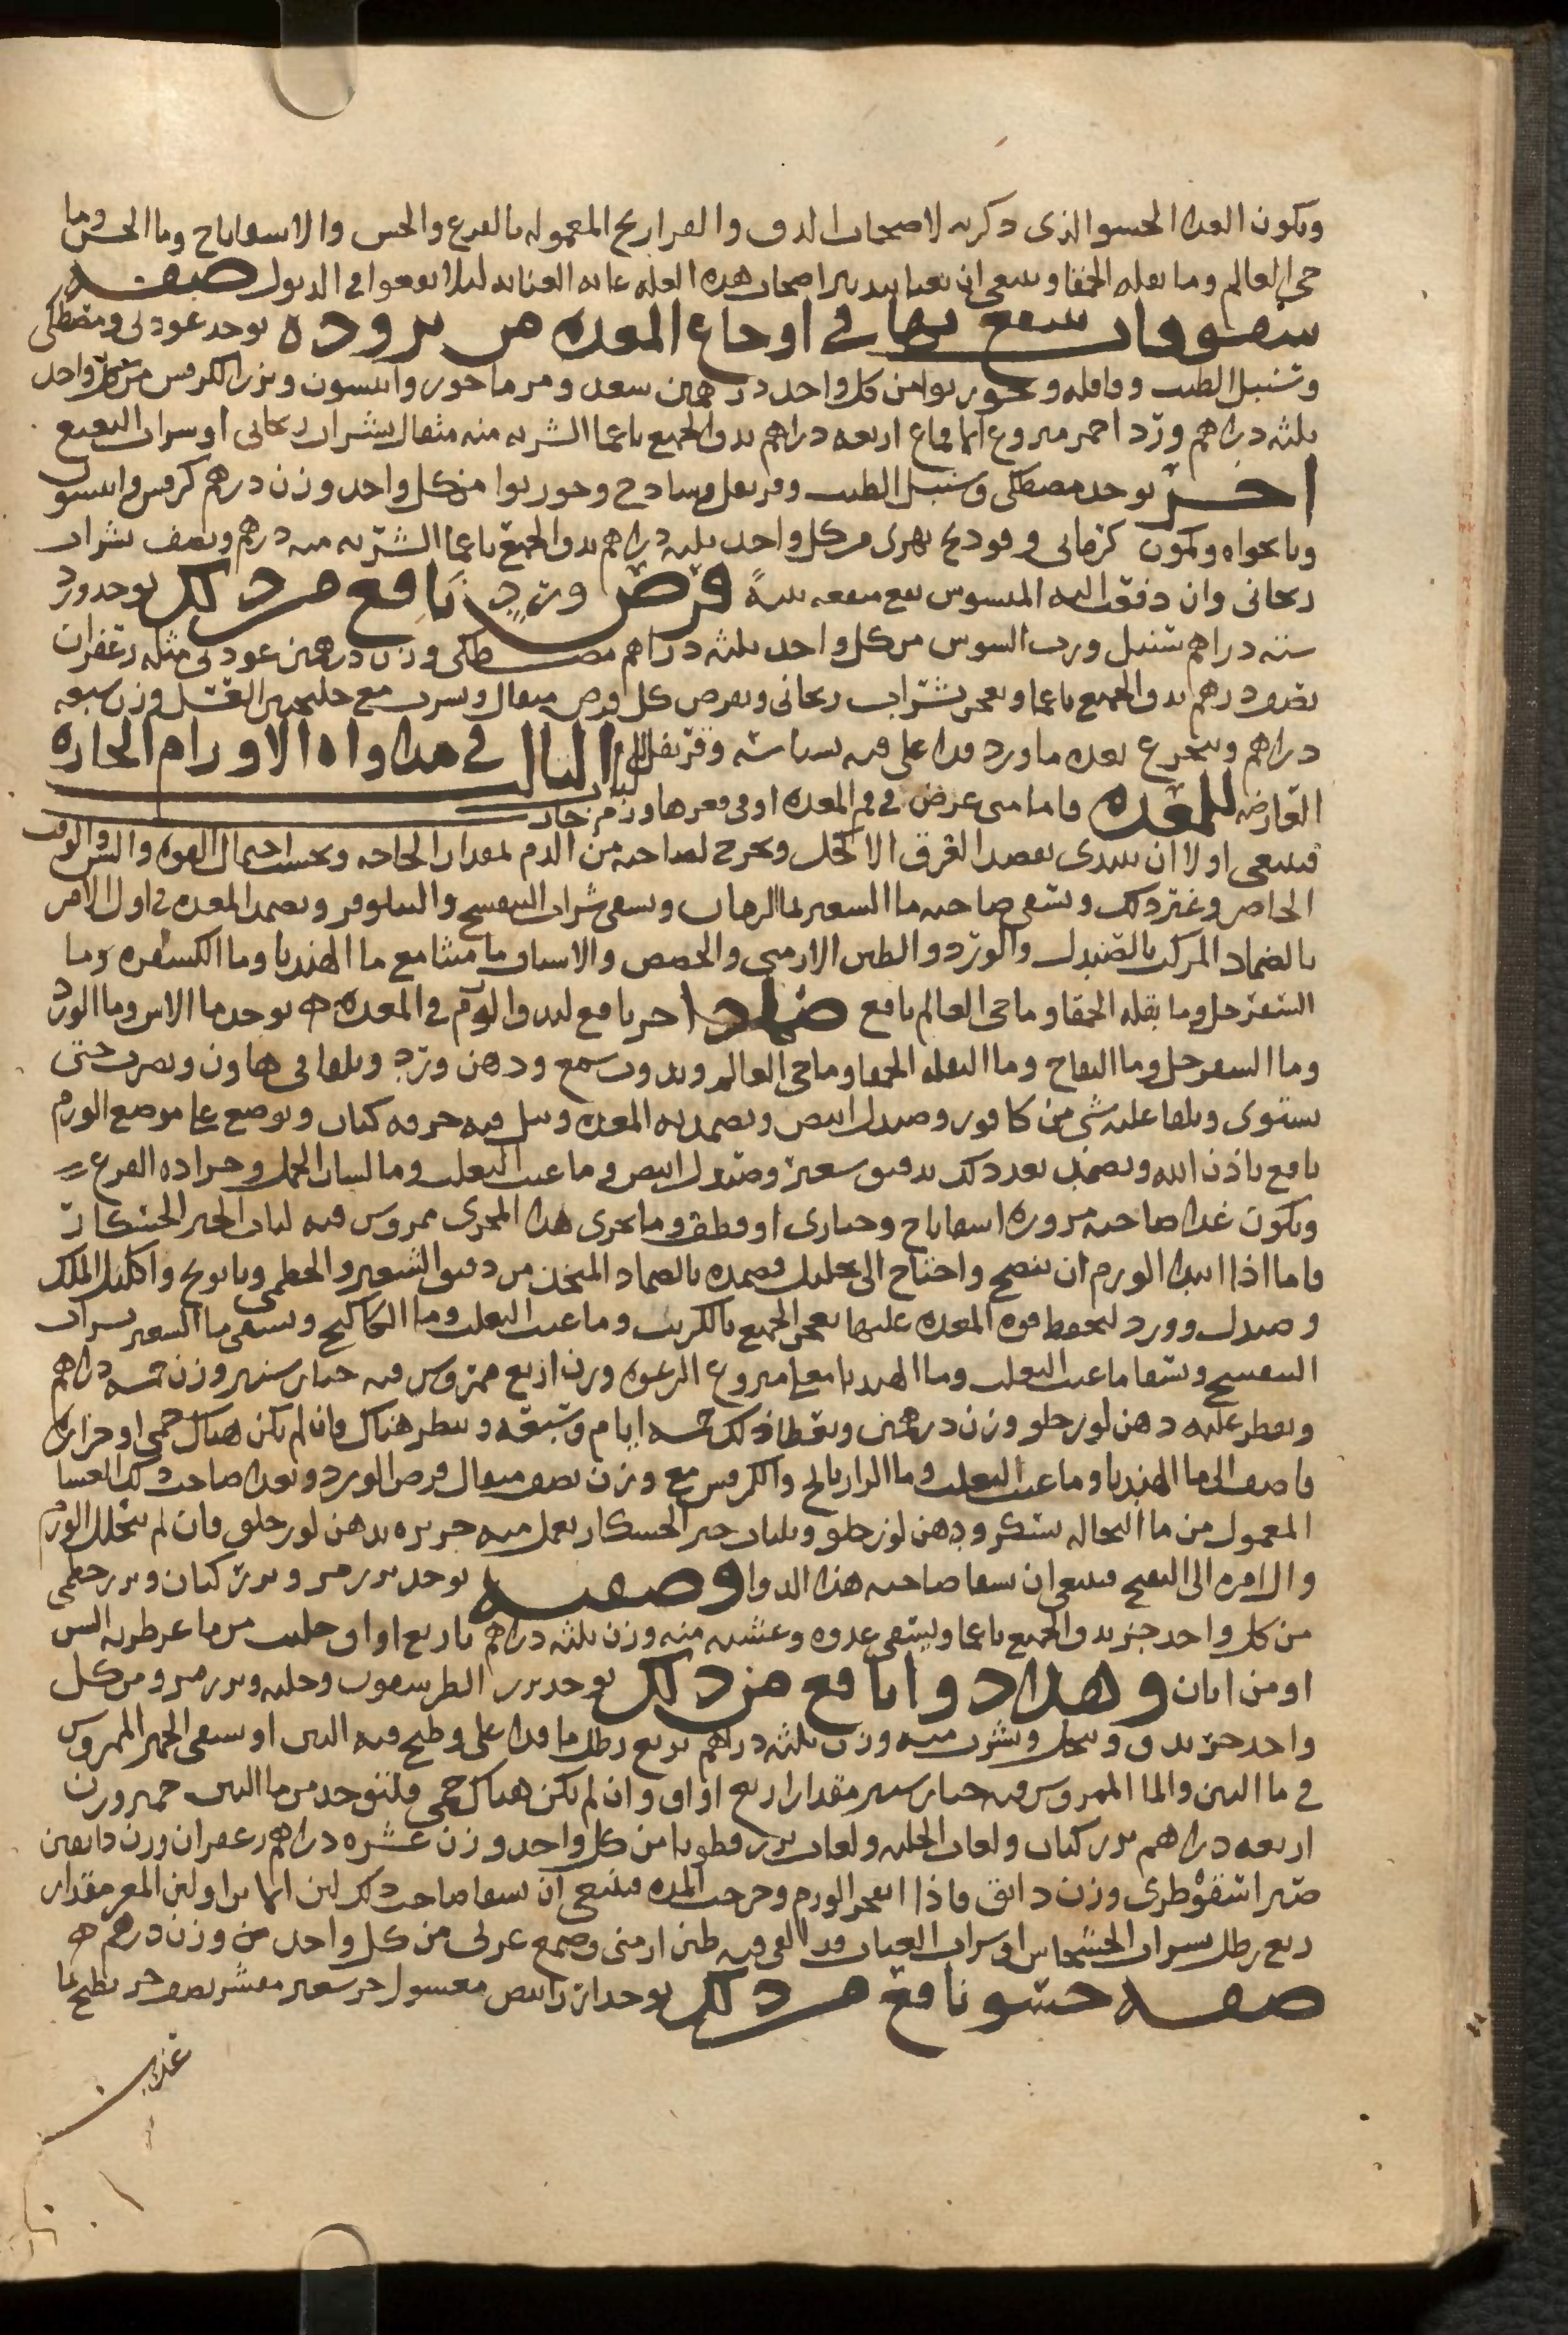 ويكون الغذا الحسو الذي ذكرته لاصحاب الدق والفراريج المعموله بالقرع والخس والاسفاناخ وما الخس وما
حي العالم وما بقله الحمقا وينبغي ان يعنا بتدبير اصحاب هذه العله غايه العنايه ليلا يقعوا في الذبول صفه
سفوفات ينتفع بها في اوجاع المعده من بروده يوخد عود ني ومصطكي
وسنبل الطيب وقاقله وجوز بوا من كل واحد درهمين سعد ومرماحوز وانيسون وبزر الكرفس من كل واحد
ثلثه دراهم ورد احمر منزوع الاقماع اربعه دراهم يدق الجميع ناعما الشربه منه مثقال بشراب ريحاني او شراب
اخر يوخد مصطكي وسنبل الطيب وقرنفل وسادج وجوز بوا من كل واحد وزن درهم كرفس وانيسون
ونانخواه وكمون كرماني وفودنج نهري من كل واحد ثلثه دراهم يدق الجميع ناعما الشربه منه درهم ونصف بشراب
ريحاني وان دفقت اليه نفع منفعه بينةً قرص ورد نافع من ذلك يوخد ورد
سته دراهم سنبل ورب السوس من كل واحد ثلثه دراهم مصطكى وزن درهمين عود ني مثله زعفران
نصف درهم يدق الجميع ناعما ويعجن بشراب ريحاني ويقرص كل قرص مثقال ويشرب مع جلنجبين العسل وزن سبعه
دراهم ويتجرع بعده ما ورد قد اغلي فيه بسباسه وقرنفل الباب الثالث في مداواه الاورام الحاره
العارضه للمعده فاما متى عرض في فم المعده او في قعرها ورم حار
فينبغي اولا ان يبتدى بفصد العرق الاكحل ويخرج لصاحبه من الدم بمقدار الحاجه وبحسب احتمال القوه والسن والوقت
الحاضر وغير ذلك ويسقي صاحبه ما الشعير بما الرمان ويسقي شراب البنفسج والنيلوفر ويضمد المعده في اول الامر
بالضماد المركب بالصندل والورد والطين الارميني والحضض والاشياف ماميثا مع ما الهندبا وما الكسفره وما
السفرجل وما بقله الحمقا وما حي العالم نافع ضماد اخر نافع لبدو الورم في المعده يوخد ما الاس وما الورد
وما السفرجل وما التفاح وما البقله الحمقا وما حي العالم ويدوب شمع ودهن ورد ويلقا في هاون ويضرب حتى
يستوي ويلقا عليه شي من كافور وصندل ابيض ويضمد به المعده ويبل فيه خرقه كتان وتوضع علي موضع الورم
نافع باذن الله ويضمد بعد ذلك بدقيق شعير وصندل ابيض وما عنب الثعلب وما لسان الحمل وجراده القرع
ويكون غذا صاحبه مزوره اسفاناخ وخبازى او قطف وما يجري هذا المجرى ممروس فيه لباب الخبز الخشكار
فاما اذا ابتدا الورم ان ينضج واحتاج الى تحليل فضمده بالضماد المتخذ من دقيق الشعير والخطمي وبابونج واكليل الملك
وصندل وورد لتحفظ قوه المعده عليها يعجن الجميع بالكرنب وما عنب الثعلب وما الكاكنج ويسقي ما الشعير بشراب
البنفسج ويسقا ما عنب الثعلب وما الهندبا مغلي منزوع الرغوه وزن اربع ممروس فيه خيار شنبر وزن خمسه دراهم
ويقطر عليه دهن لوز حلو وزن درهمين ويعطا ذلك خمسه ايام وسبعه وينظر هناك فان لم يكن هناك حمى او حراره
فاضف الى ما الهندبا وما عنب الثعلب وما الرازيانج والكرفس مع وزن نصف مثقال قرص الورد ويغدا صاحب ذلك الحسا
المعمول من ما النخاله بسكر ودهن لوز حلو ولباب خبز الخشكار يعمل منه حريره بدهن لوز حلو فان لم يتحلل الورم
والا امره الى النضج فينبغي ان يسقا صاحبه هذا الدوا وصفه يوخد بزر مرو وبزر كتان وبزر خطمي
من كل واحد جز يدق الجميع ناعما ويسقي غدوه وعشيه منه وزن ثلثه دراهم باربع اواق حليب من ماعز طريه السن
او من اتان وهذا دوا نافع من ذلك يوخد بزر وحلبه وبزر مرو من كل
واحد جز يدق وينخل ويشرب منه وزن ثلثه دراهم بربع رطل ما قد اغلي وطبخ فيه التين او يسقي الخمير الممروس
في ما التين والما الممروس فيه خيار شنبر مقدار اربع اواق وان لم يكن هناك حمى فليوخد من ما التين خمير وزن
اربعه دراهم بزر كتان ولعاب الحلبه ولعاب بزر قطونا من كل واحد وزن عشره دراهم زعفران وزن دانقين
صبر اسقوطرى وزن دانق فاذا انفجر الورم وخرجت المده فينبغي ان يسقا صاحب ذلك لبن الماعز او لبن المعز مقدار
ربع رطل بشراب الخشخاش او شراب العناب قد القي فيه طين ارمني وصمغ عربي من كل واحد من وزن درهم
صفه حسو نافع من ذلك يوخد ارز ابيض مغسول جز شعير مقشر نصف جز يطبخ بما
عذب